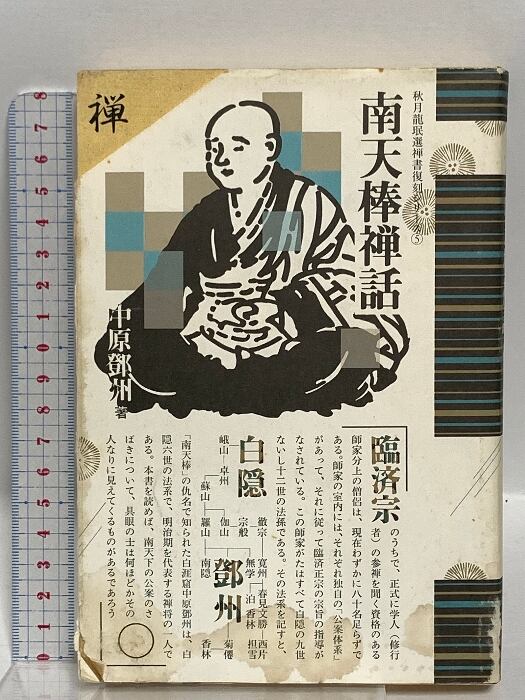 禅
秋月龍珉選禅書復刻シリーズ⑤
南天棒禅話
中原鄧州 著
臨済宗 のうちで、正式に学人（修行
者）の参禅を聞く資格のある
師家分上の僧侶は、現在わずかに八十名足らずで
ある。師家の室内には、それぞれ独自の「公案体系」
があって、それに従って臨済正宗の宗旨の指導が
なされている。この師家がたはすべて白隠の九世
ないし十二世の法孫である。その法系を記すと、
白隠
峨山 卓州
蘇山 羅山
伽山 南隠
徹宗
宗般
無学
鄧州
寛州 春見文勝 西片
泊 香林 担雪
菊僊
香林
「南天棒」の仇名で知られた白崖窟中原鄧州は、白
隠六世の法系で、明治期を代表する禅将の一人で
ある。本書を読めば、南天下の公案のさ
ばきについて、具眼の士は何ほどかその
人なりに見えてくるものがあるであろう